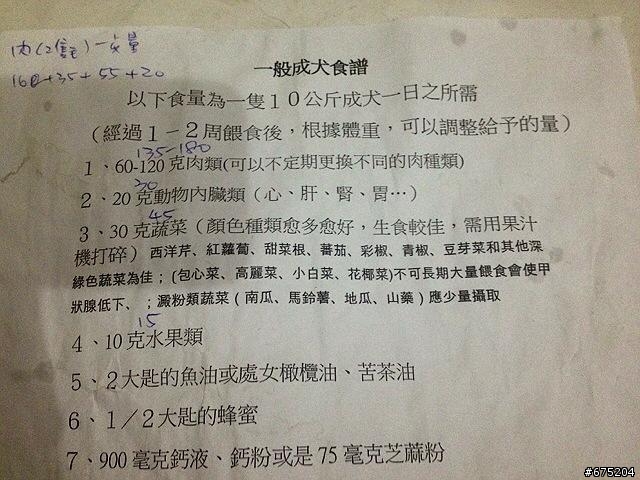 肉(2隻)一次量
160+35+55+20
一般成犬食譜
以下食量為一隻10公斤成犬一日之所需
(經過1-2周餵食後，根據體重，可以調整給予的量)
135-180
1、60-120克肉類(可以不定期更換不同的肉種類)
30
2、20克動物內臟類(心、肝、腎、胃…)
45
3、30克蔬菜(顏色種類愈多愈好，生食較佳，需用果汁
機打碎) 西洋芹、紅蘿蔔、甜菜根、蕃茄、彩椒、青椒、豆芽菜和其他深
綠色蔬菜為佳；(包心菜、高麗菜、小白菜、花椰菜)不可長期大量餵食會使甲
狀腺低下、；澱粉類蔬菜(南瓜、馬鈴薯、地瓜、山藥)應少量攝取
15
4、10克水果類
5、2大匙的魚油或處女橄欖油、苦茶油
6、1/2大匙的蜂蜜
7、900毫克鈣液、鈣粉或是75毫克芝蔴粉
#675204